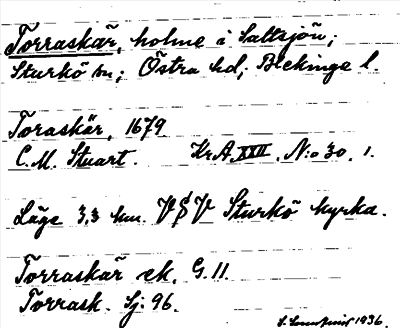 Torraskär, holme i Saltsjön;
Sturkö sn; Östra hd; Blekinge l.
Toraskär, 1679
C.M. Stuart. Kr.A. XXII. N:o 30. 1.
Läge 3,3 km. V$V Sturkö kyrka.
Torraskär ek. G. 11.
Torrask. Sj: 96.
1936.